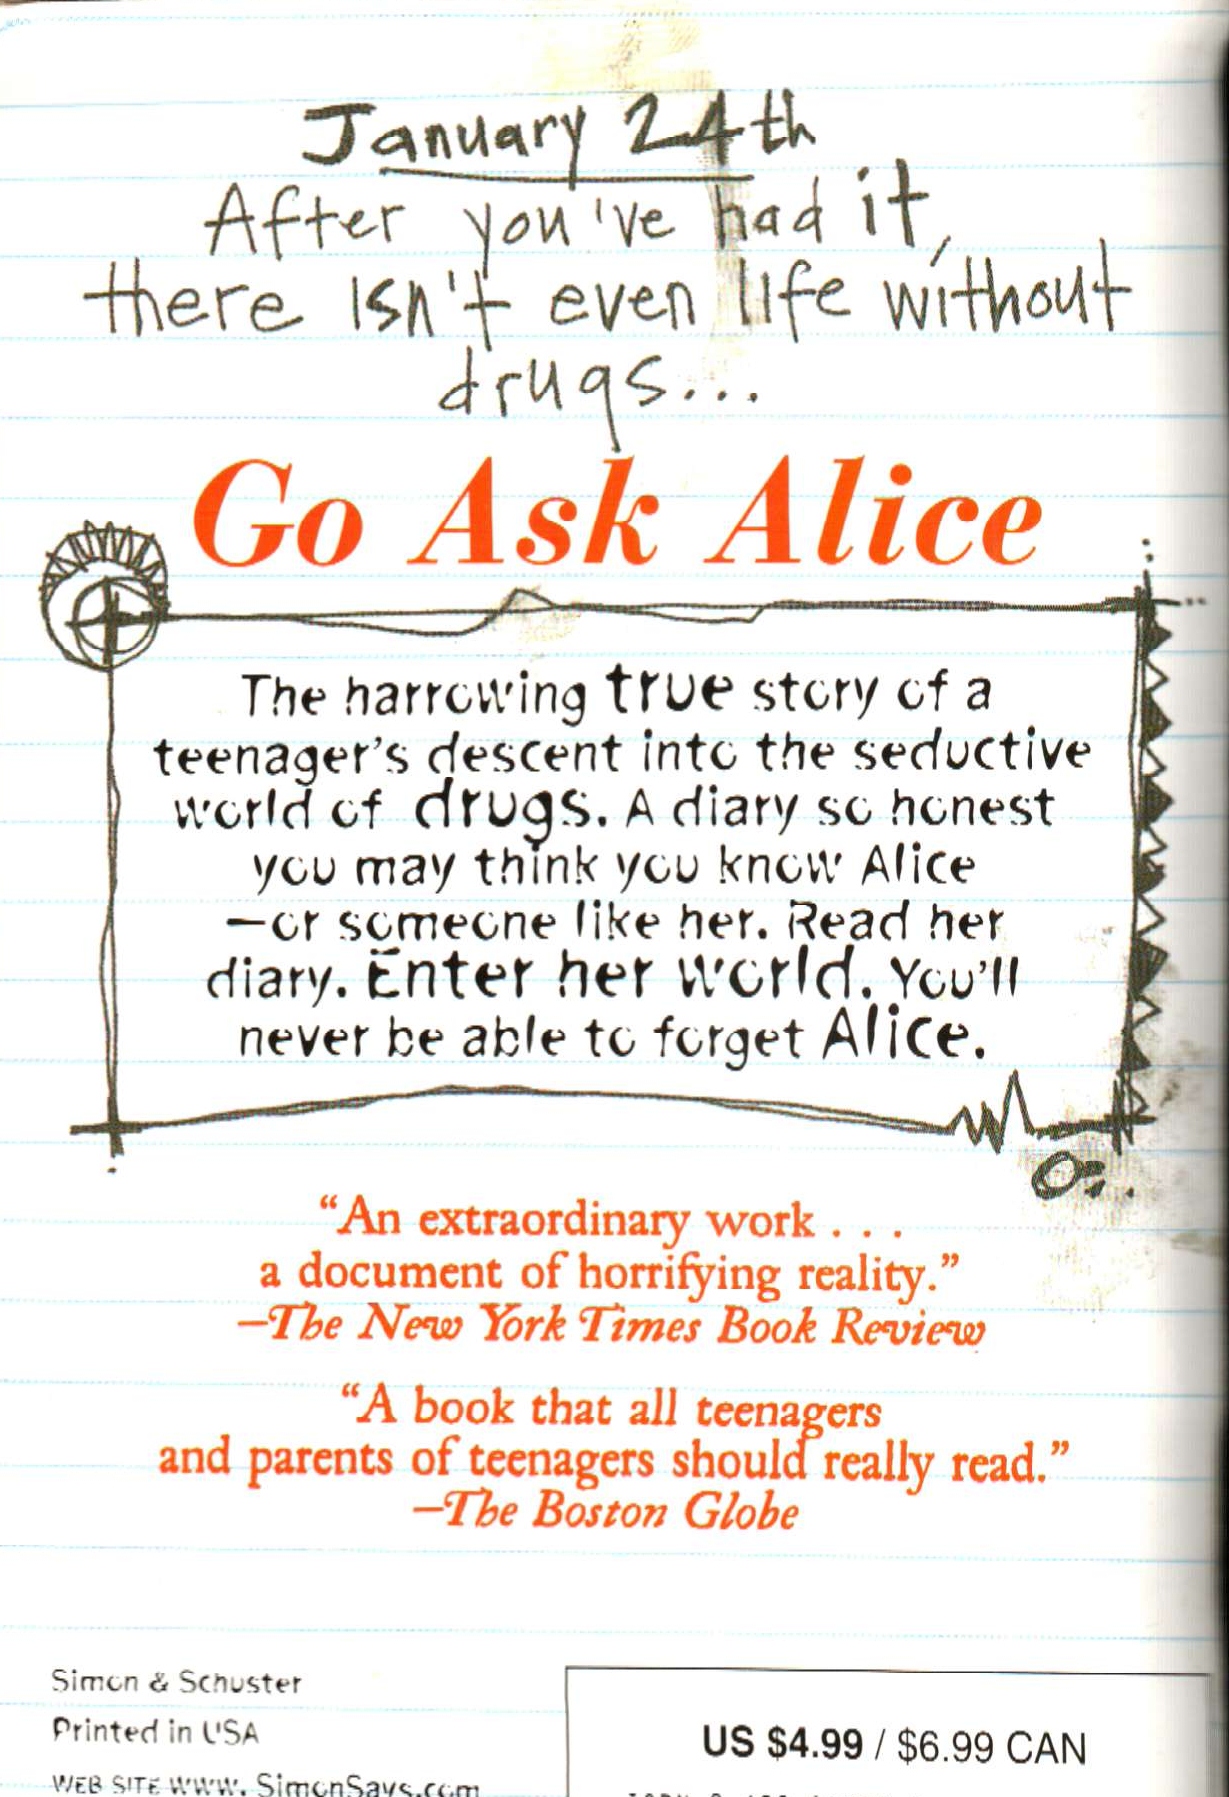 January 24th
After you've had it,
there isn't even life without
drugs...
Go Ask Alice
The harrowing true story of a
teenager's descent into the seductive
world of drugs. A diary so honest
you may think you know Alice
—or someone like her. Read her
diary. Enter her world. You'll
never be able to forget Alice.
“An extraordinary work . . .
a document of horrifying reality.”
—The New York Times Book Review
“A book that all teenagers
and parents of teenagers should really read.”
—The Boston Globe
Simon & Schuster
Printed in USA
WEB SITE www. SimonSays.com
US $4.99 / $6.99 CAN